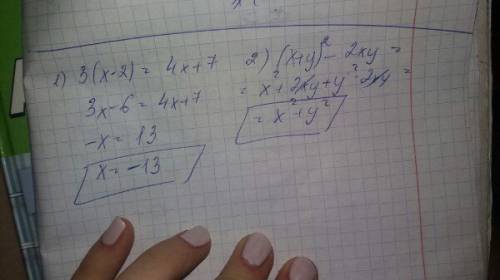 1) 3(x-2) = 4x+7
3x-6 = 4x+7
-x = 13
x = -13
2) (x+y)² - 2xy =
= x² + 2xy + y² - 2xy =
= x² + y²